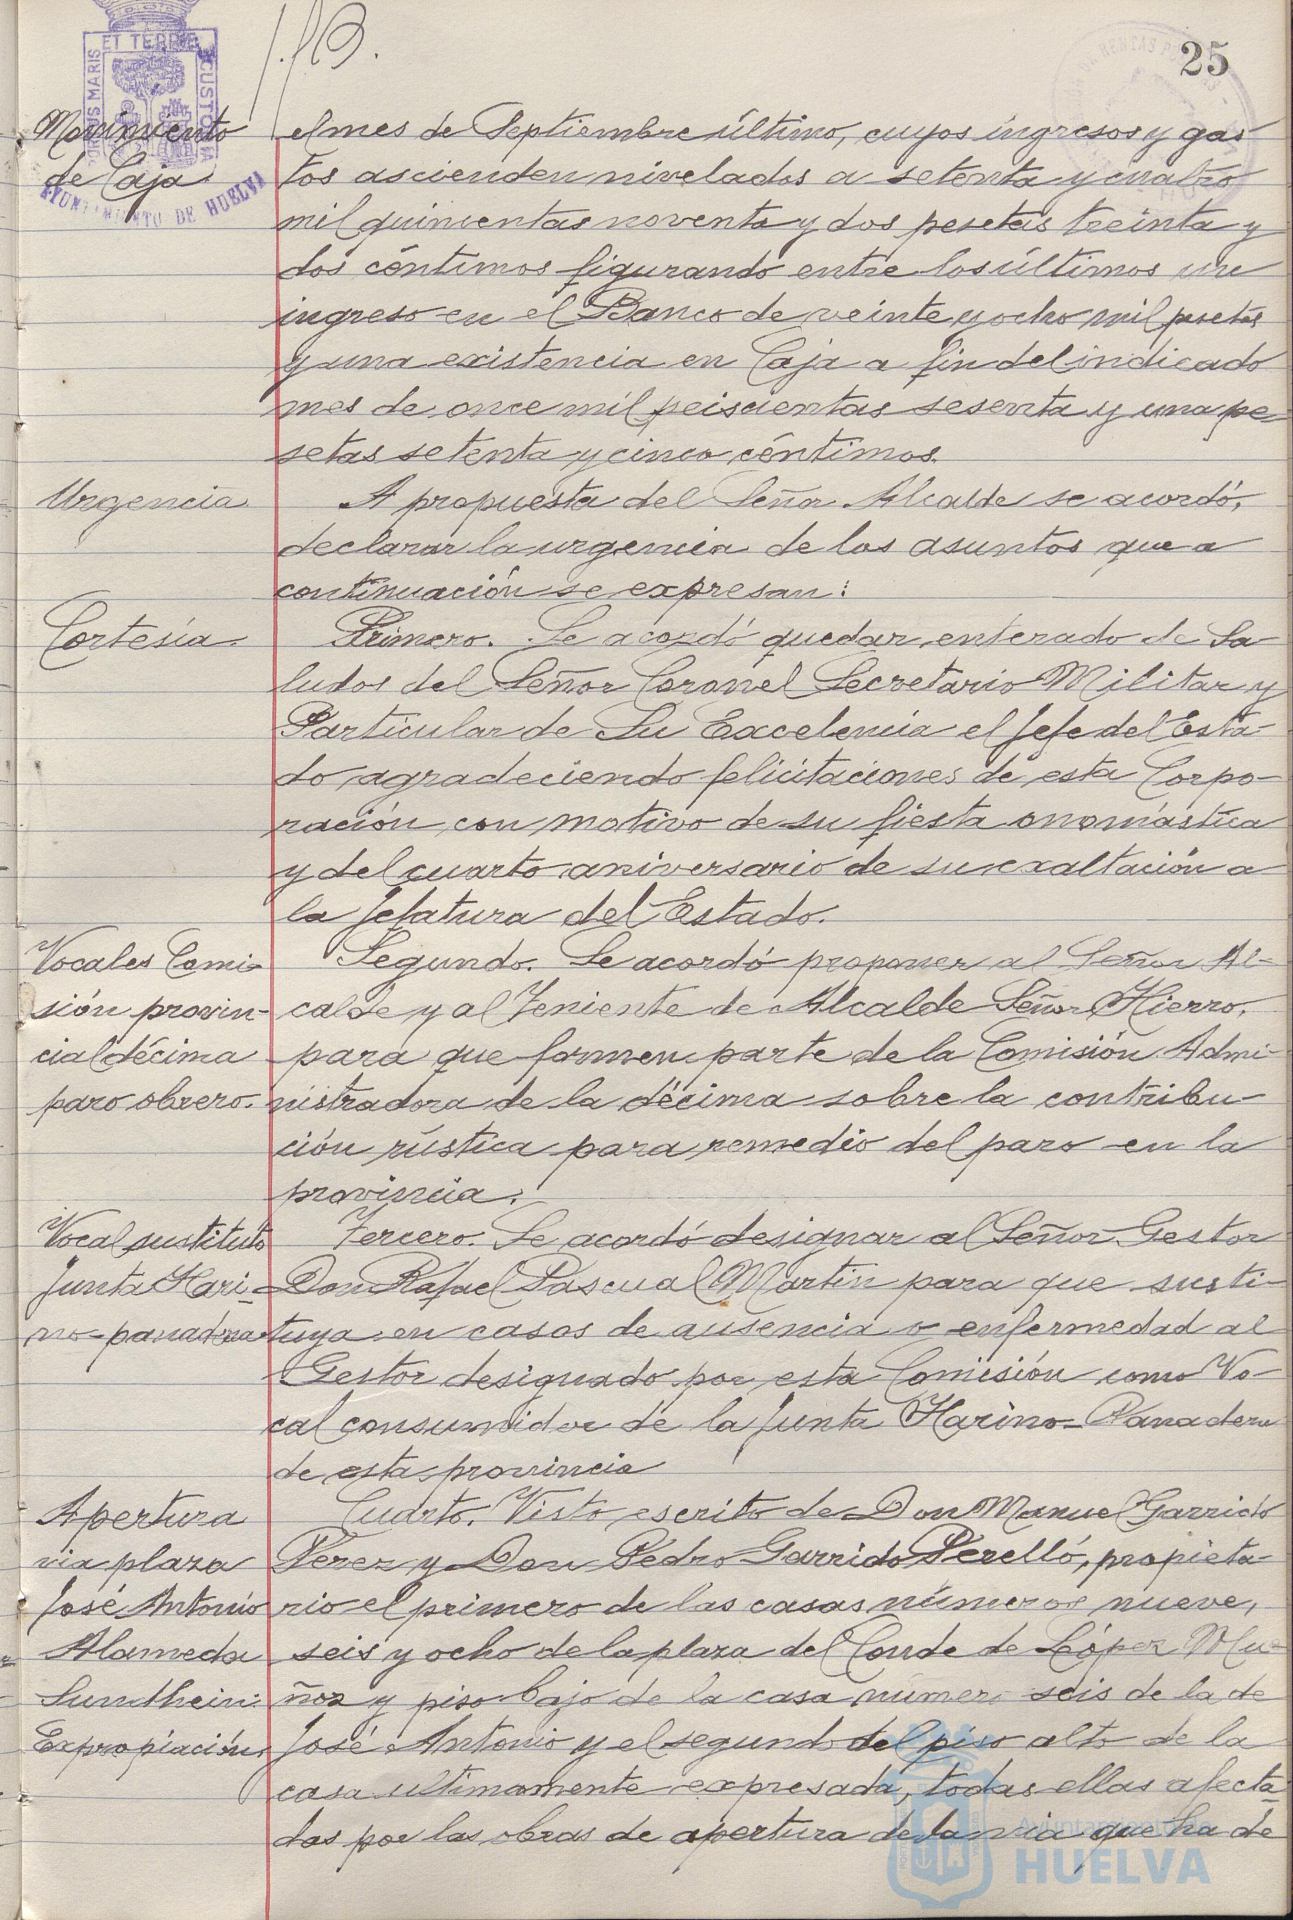 25
PORTUS MARIS ET TERRÆ CUSTODIA
AYUNTAMIENTO DE HUELVA
Movimiento
de Caja
el mes de Septiembre último, cuyos ingresos y gas-
tos ascienden nivelados a setenta y cuatro
mil quinientas noventa y dos pesetas treinta y
dos céntimos figurando entre los últimos un
ingreso en el Banco de veinte y ocho mil pesetas
y una existencia en Caja a fin del indicado
mes de once mil seiscientas sesenta y una pe-
setas setenta y cinco céntimos.
Urgencia
A propuesta del Señor Alcalde se acordó,
declarar la urgencia de los asuntos que a
continuación se expresan:
Cortesía.
Primero. Se acordó quedar enterado de Sa-
ludos del Señor Coronel Secretario Militar y
Particular de Su Excelencia el Jefe del Esta-
do agradeciendo felicitaciones de esta Corpo-
ración con motivo de su fiesta onomástica
y del cuarto aniversario de su exaltación a
la Jefatura del Estado.
Vocales Comi-
sión provin-
cial décima
paro obrero.
Segundo. Se acordó proponer al Señor Al-
calde y al Teniente de Alcalde Señor Hierro,
para que formen parte de la Comisión Admi-
nistradora de la décima sobre la contribu-
ción rústica para remedio del paro en la
provincia.
Vocal sustituto
Junta Hari-
no-panadera
Tercero. Se acordó designar al Señor Gestor
Don Rafael Pascual Martín para que susti-
tuya en casos de ausencia o enfermedad al
Gestor designado por esta Comisión como Vo-
cal consumidor de la Junta Harino-Panadera
de esta provincia
Apertura
via plaza
José Antonio
Alameda
Sundhein:
Expropiación.
Cuarto. Visto escrito de Don Manuel Garrido
Perez y Don Pedro Garrido Perelló, propieta-
rio el primero de las casas números nueve,
seis y ocho de la plaza del Conde de López Mu-
ñoz y piso bajo de la casa número seis de la de
José Antonio y el segundo del piso alto de la
casa ultimamente expresada, todas ellas afecta-
das por las obras de apertura de la via que ha de
Ayuntamiento de
HUELVA